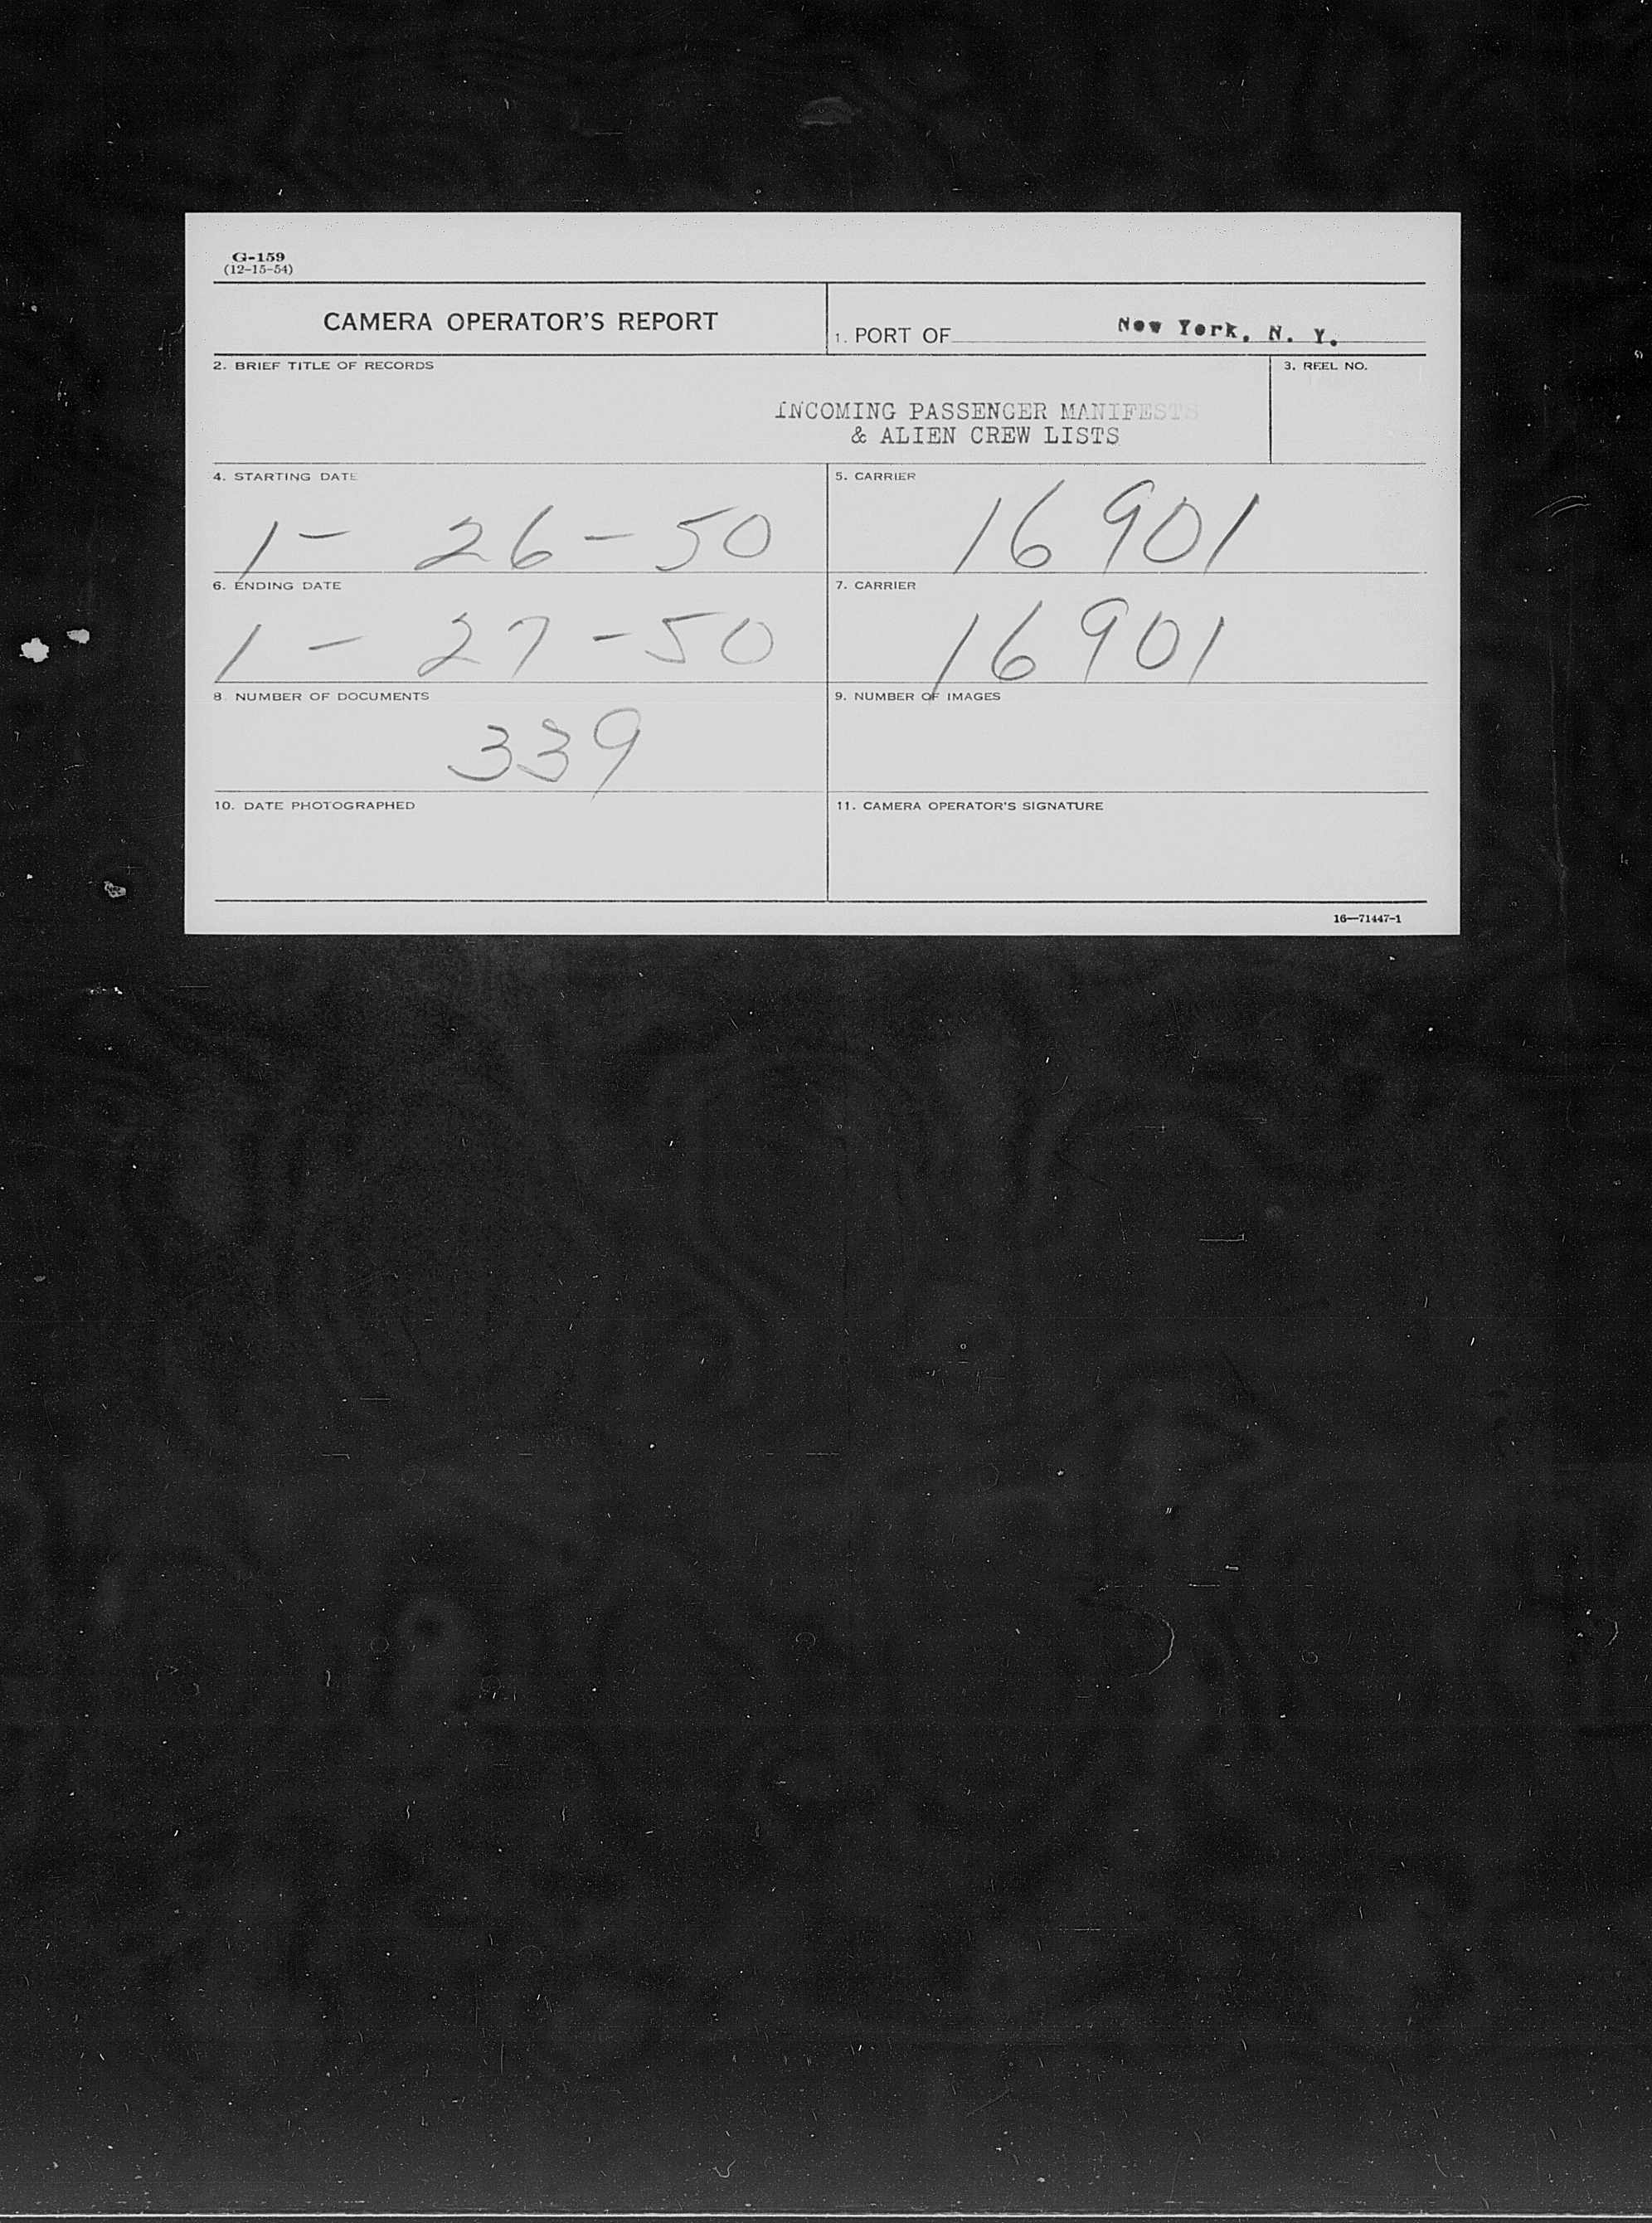 G-159
(12-15-54)
CAMERA OPERATOR'S REPORT
1. PORT OF New York, N. Y.
2. BRIEF TITLE OF RECORDS
3. REEL NO.
INCOMING PASSENGER MANIFESTS
& ALIEN CREW LISTS
4. STARTING DATE
1 - 26 - 50
5. CARRIER
16901
6. ENDING DATE
1 - 27 - 50
7. CARRIER
16901
8. NUMBER OF DOCUMENTS
339
9. NUMBER OF IMAGES
10. DATE PHOTOGRAPHED
11. CAMERA OPERATOR'S SIGNATURE
16—71447-1